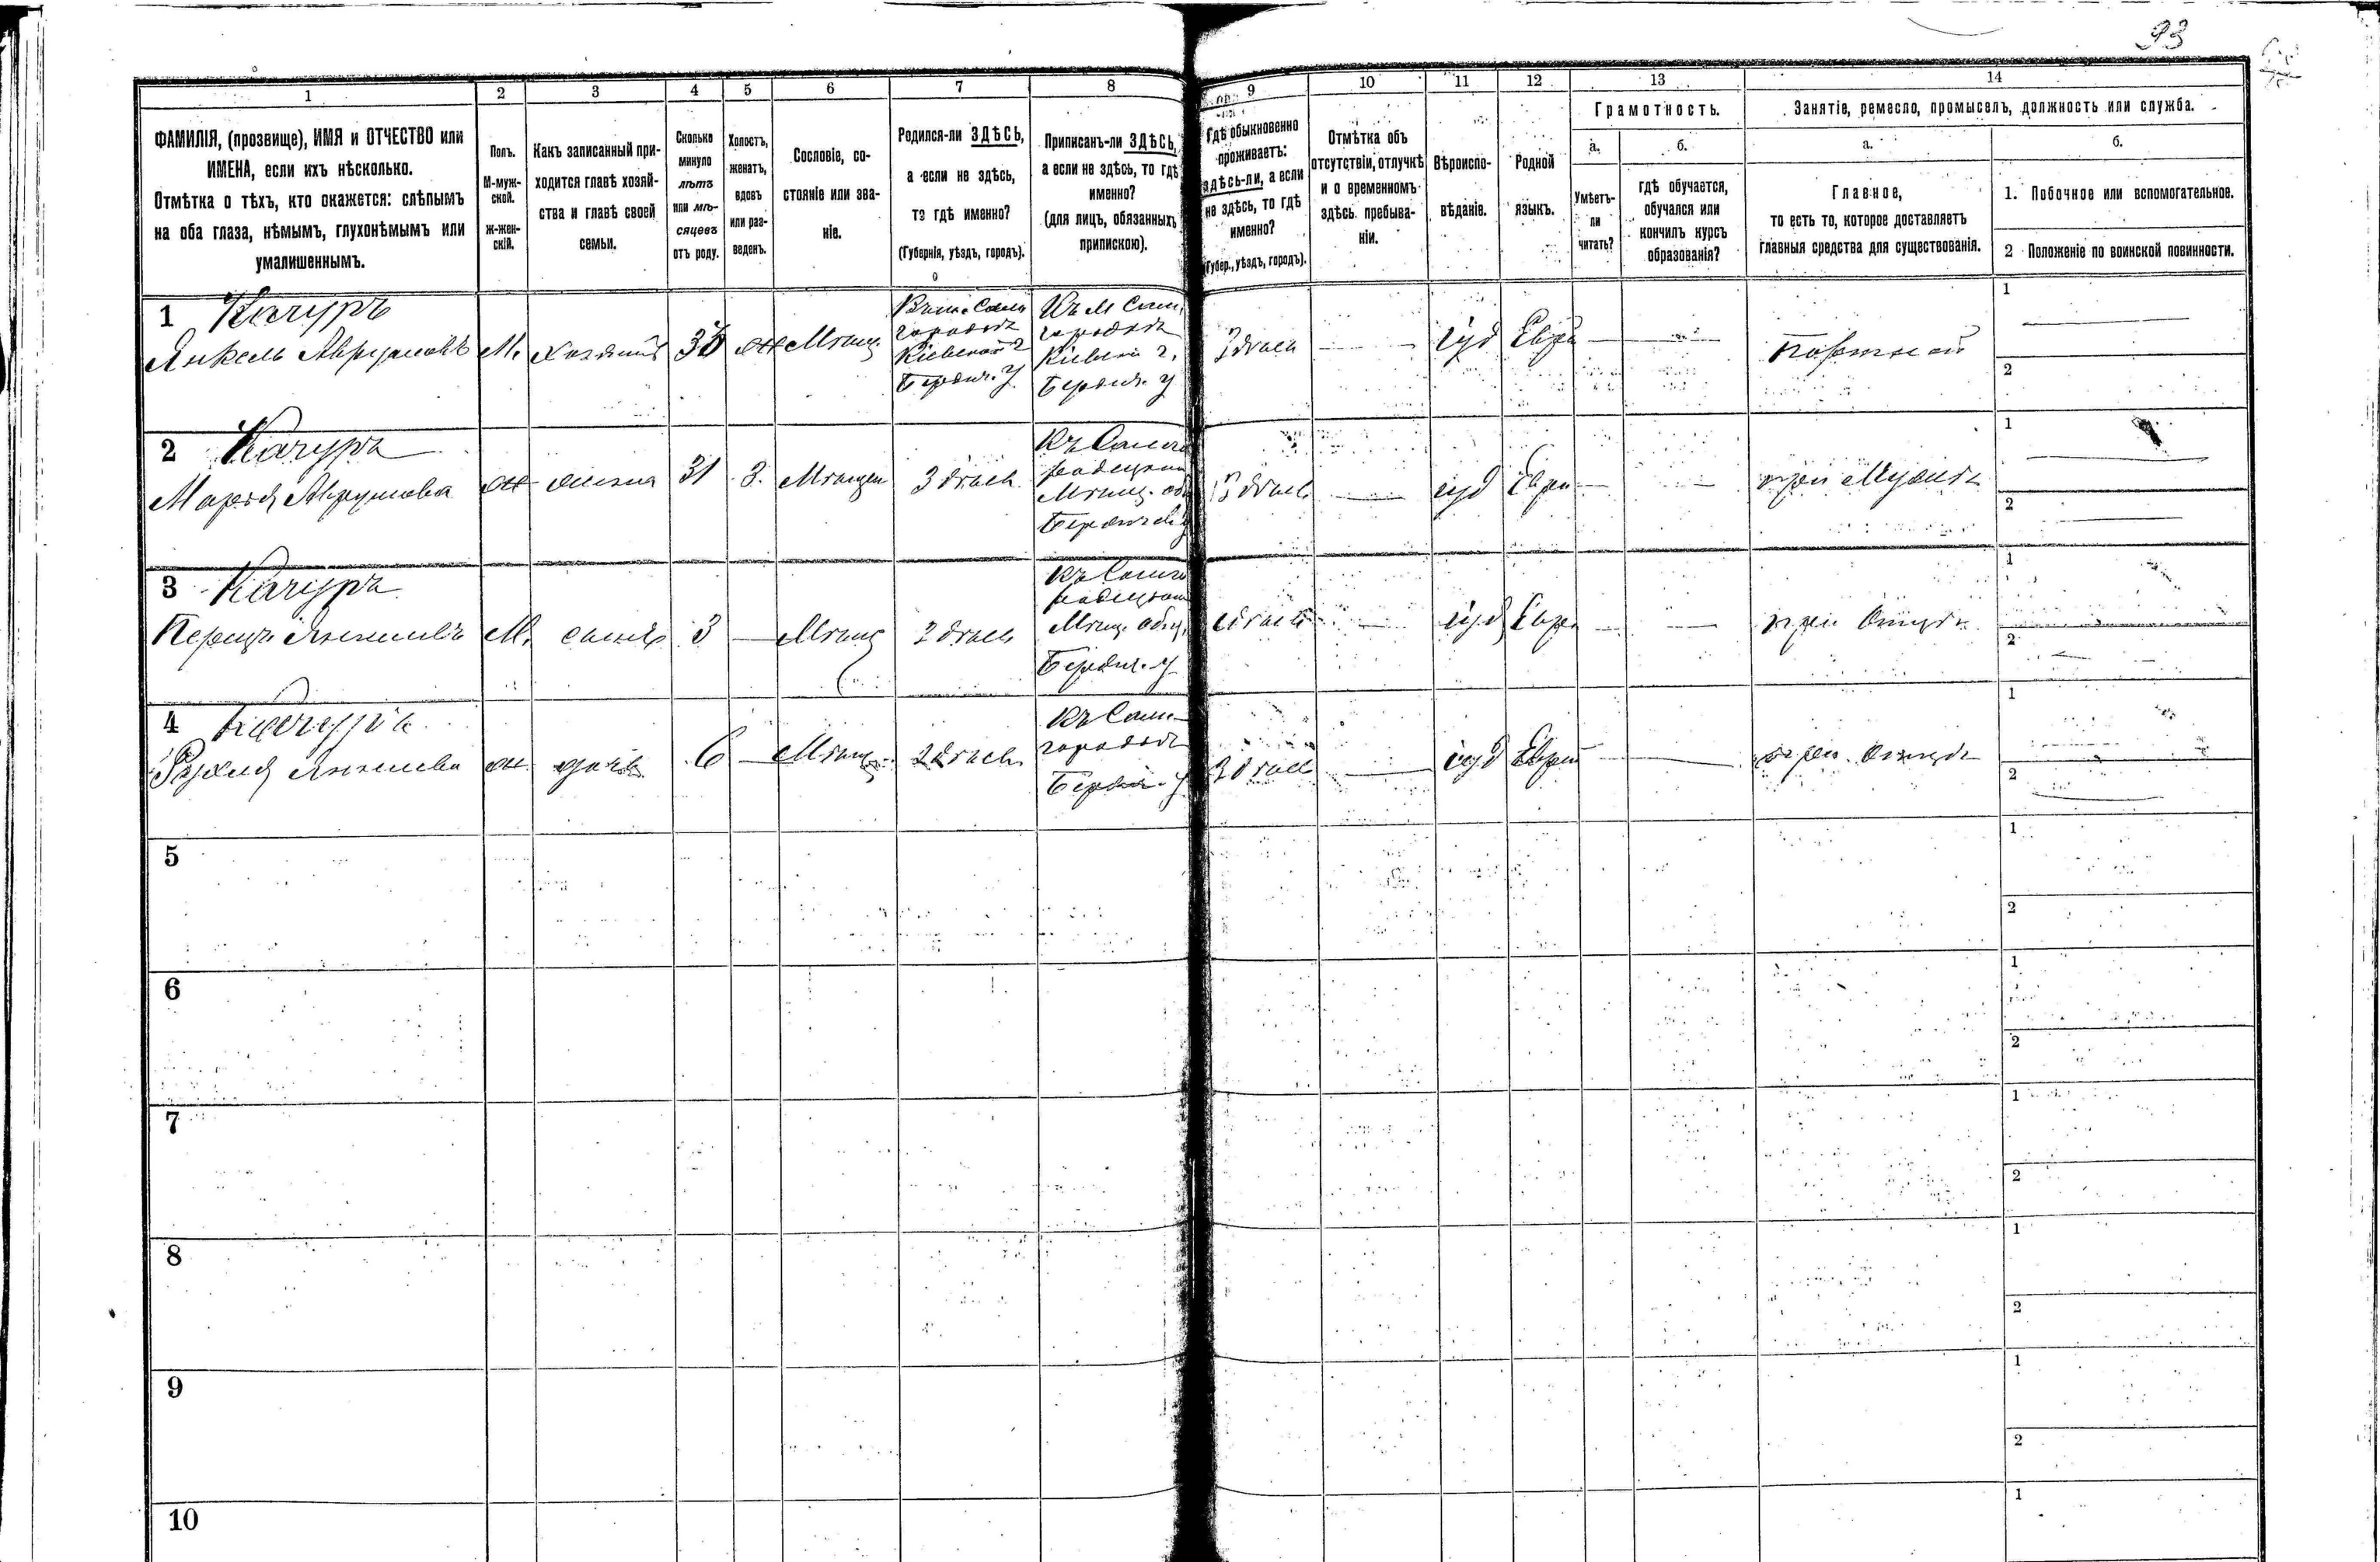 93
1 2 3 4 5 6 7 8 9 10 11 12 13 14
ФАМИЛІЯ, (прозвище), ИМЯ и ОТЧЕСТВО или
ИМЕНА, если ихъ нѣсколько.
Отмѣтка о тѣхъ, кто окажется: слѣпымъ
на оба глаза, нѣмымъ, глухонѣмымъ или
умалишеннымъ.
Полъ.
М-муж-
ской.
ж-жен-
скій.
Какъ записанный при-
ходится главѣ хозяй-
ства и главѣ своей
семьи.
Сколько
минуло
лѣтъ
или мѣ-
сяцевъ
отъ роду.
Холостъ,
женатъ,
вдовъ
или раз-
веденъ.
Сословіе, со-
стояніе или зва-
ніе.
Родился-ли ЗДѢСЬ,
а если не здѣсь,
то гдѣ именно?
(Губернія, уѣздъ, городъ).
Приписанъ-ли ЗДѢСЬ,
а если не здѣсь, то гдѣ
именно?
(для лицъ, обязанныхъ
припискою).
Гдѣ обыкновенно
проживаетъ:
здѣсь-ли, а если
не здѣсь, то гдѣ
именно?
(Губер., уѣздъ, городъ).
Отмѣтка объ
отсутствіи, отлучкѣ
и о временномъ
здѣсь пребыва-
ніи.
Вѣроиспо-
вѣданіе.
Родной
языкъ.
Грамотность.
а.
Умѣетъ-
ли
читать?
б.
гдѣ обучается,
обучался или
кончилъ курсъ
образованія?
Занятіе, ремесло, промыселъ, должность или служба.
а.
Главное,
то есть то, которое доставляетъ
главныя средства для существованія.
б.
1. Побочное или вспомогательное.
2 Положеніе по воинской повинности.
1 Качуръ
Янкель Аврумовъ
М. хозяинъ ж Мѣщ.
Кіевской г
Бердич. у
Кіевск г.
Бердич. у
здѣсь іуд Евр
портной
1
2
2 Качуръ
Марья Аврумова
ж жена 31 З. Мѣщан здѣсь
Мѣщ. общ
здѣсь іуд Евр
при мужѣ
1
2
3 Качуръ
Перецъ Янкелевъ
М. сынъ 3 Мѣщ здѣсь
Мѣщ. общ.
Бердич. у
здѣсь іуд Евр
при отцѣ
1
2
4 Качуръ
Рухля Янкелева
ж. дочь 6 Мѣщ здѣсь
Къ Сам-
городкѣ
Бердич. у
здѣсь іуд Евр
при отцѣ
1
2
5
1
2
6
1
2
7
1
2
8
1
2
9
1
2
10
1